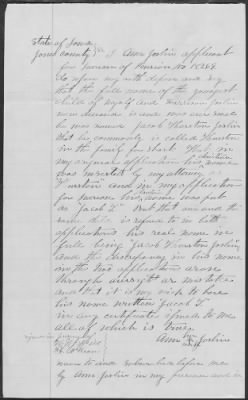 State of Iowa
Jones County } SS I Ann Joslin applicant
for Increase of Pension No 18264
do upon my oath depose and say
that the full name of the youngest
child of myself and Harrison Joslin
now deceased is and was ever since
he was named Jacob Thurston Joslin
that he commonly is called Thurston
in the family for short. That in
my original application his name
was inserted by my attorney as
"Thurston" and in my application
for increase his name was put
as "Jacob T" But that one and the
same child is referred to in both
applications his real name in
full being "Jacob Thurston Joslin"
and the discrepancy in his name
in the two applications arose
through oversight or mistake
and that it is my wish to have
his name written "Jacob T"
in any certificate issued to me
all of which is true.
Ann Joslin
her mark
sworn to and subscribed before me
by Ann Joslin in my presence and in